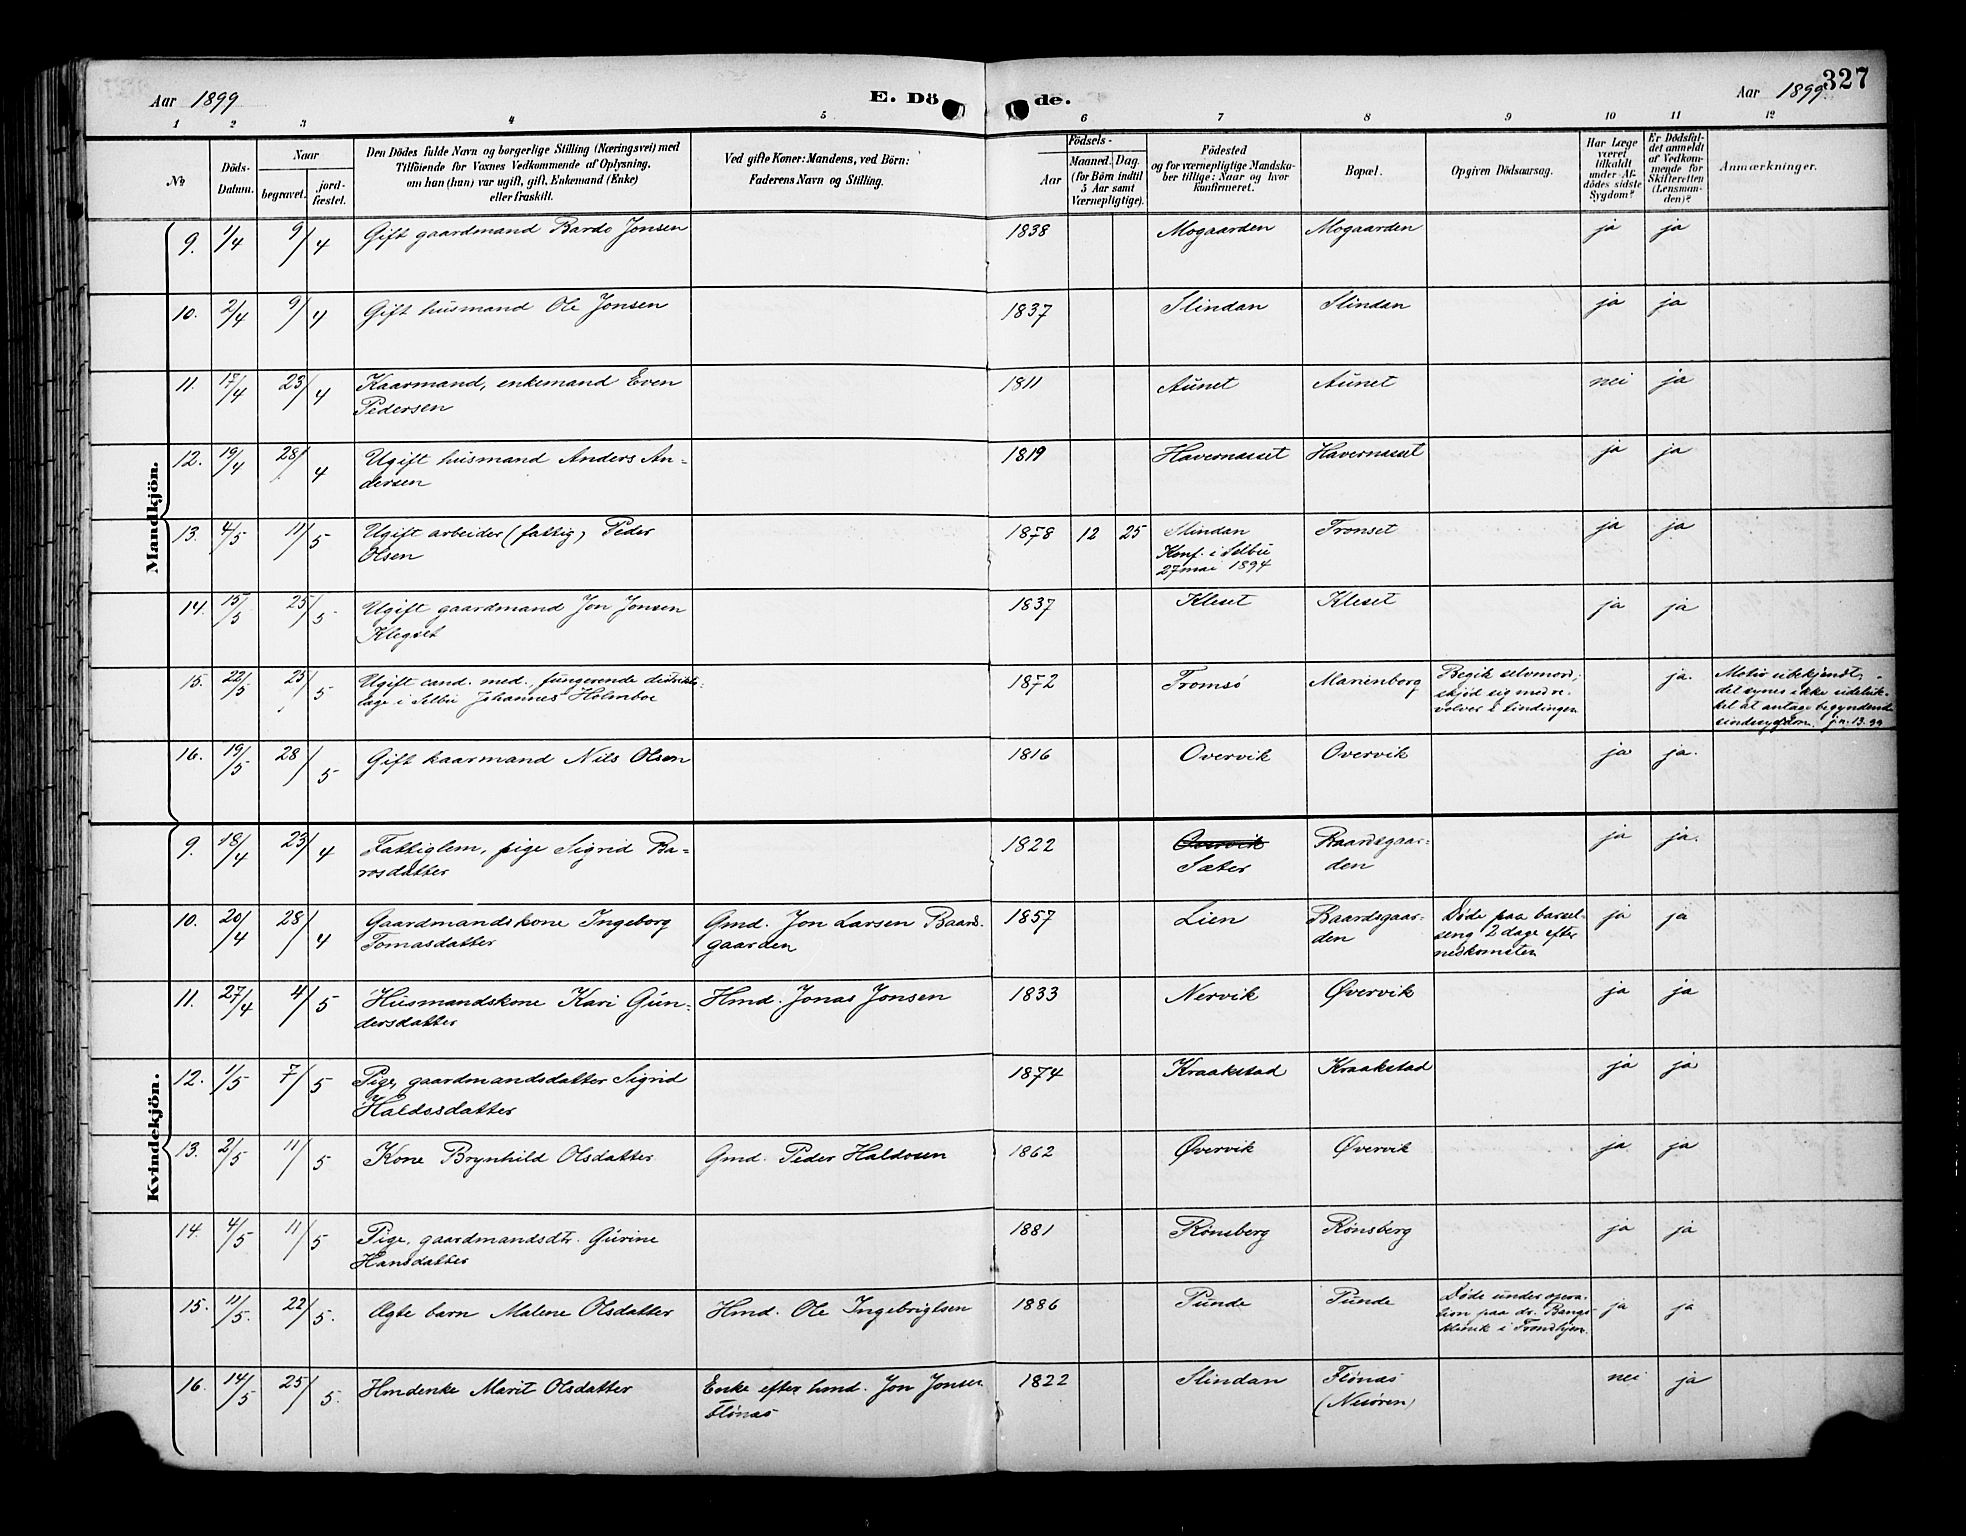 327
Aar 1899 E. Döde. Aar 1899
1 2 3 4 5 6 7 8 9 10 11 12
No
Döds-Datum.
Naar
begravet.
jord-fæstet.
Den Dödes fulde Navn og borgerlige Stilling (Næringsvei) med
Tilföiende for Voxnes Vedkommende af Oplysning,
om han (hun) var ugift, gift, Enkemand (Enke)
eller fraskilt.
Ved gifte Koner: Mandens, ved Börn:
Faderens Navn og Stilling.
Födsels-
Aar
Maaned. Dag.
(for Börn indtil
5 Aar samt
Værnepligtige).
Födested
og for værnepligtige Mandska-
ber tillige: Naar og hvor
konfirmeret.
Bopæl.
Opgiven Dödsaarsag.
Har Læge
været
tilkaldt
under Af-
dödes sidste
Sygdom?
Er Dödsfal-
det anmeldt
af Vedkom-
mende for
Skifteretten
(Lensman-
den)?
Anmærkninger.
Mandkjön.
9. 1/4 9/4 Gift gaardmand Bardo Jonsen 1838 Mogaarden Mogaarden ja ja
10. 2/4 9/4 Gift husmand Ole Jonsen 1837 Slindan Slindan ja ja
11. 17/4 23/4 Kaarmand, enkemand Even 1811 Aunet Aunet nei ja
Pedersen
12. 19/4 28/4 Ugift husmand Anders An- 1819 Havernasset Havernasset ja ja
dersen
13. 4/5 11/5 Ugift arbeider (fattig) Peder 1878 12 25 Slindan Tronset ja ja
Olsen Konf. i Selbu
27 mai 1894
14. 15/5 25/5 Ugift gaardmand Jon Jonsen 1837 Kleset Kleset ja ja
Klegset
15. 22/5 25/5 Ugift cand. med., fungerende distrikts- 1872 Tromsö Marienborg Begik selvmord, ja. Motiv ubekjendt,
læge i Selbu Johannes Holmboe skjød sig med re- det synes ikke udeluk-
volver i tindingen ket at antage begyndende
sindssygdom. j.n. 13. 99
16. 19/5 28/5 Gift kaarmand Nils Olsen 1816 Overvik Overvik ja ja.
Kvindekjön.
9. 18/4 23/4 Fattiglem, pige Sigrid Ba- 1822 Overvik Baardsgaar- ja ja.
rosdatter Sæter den
10. 20/4 28/4 Gaardmandskone Ingeborg Gmd. Jon Larsen Baards- 1857 Lien Baardsgaar- Døde paa barsel- ja ja
Tomasdatter gaarden den seng 2 dage efter
nedkomsten
11. 27/4 4/5 Husmandskone Kari Gun- Hmd. Jonas Jonsen 1833 Nervik Øvervik ja ja
dersdatter
12. 1/5 7/5 Pige, gaardmandsdatter Sigrid 1874 Kraakstad Kraakstad ja ja
Haldosdatter
13. 2/5 11/5 Kone Brynhild Olsdatter Gmd. Peder Haldosen 1862 Øvervik Øvervik ja ja
14. 4/5 11/5 Pige, gaardmandsdtr. Gurine 1881 Rønsberg Rønsberg ja ja
Hansdatter
15. 11/5. 22/5. Ægte barn Malene Olsdatter Hmd. Ole Ingebrigtsen 1886 Punde Punde Døde under opera- ja ja
tion paa dr. Bangs
klinik i Trondhjem.
16. 14/5 25/5. Hmdenke Marit Olsdatter Enke efter hmd. Jon Jonsen 1822 Slindan Flönas nei ja
Flönas (Nesören)